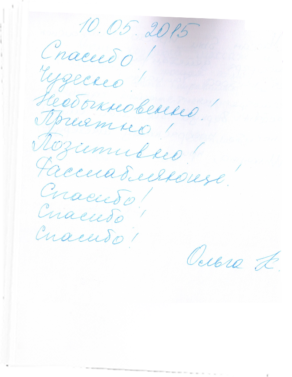 10.05.2015
Спасибо!
Чудесно!
Необыкновенно!
Приятно!
Позитивно!
Расслабляюще!
Спасибо!
Спасибо!
Спасибо!
Ольга К.